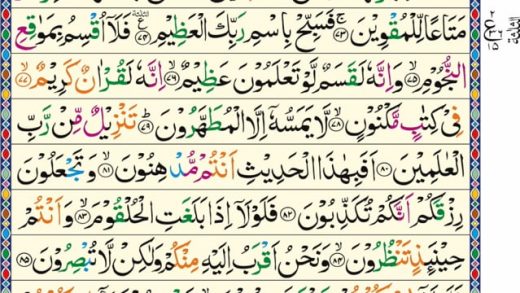 مَتَاعًا لِّلْمُقْوِيْنَ ﴿۷۳﴾ فَسَبِّحْ بِاسْمِ رَبِّكَ الْعَظِيْمِ ﴿۷۴﴾ فَلَاۤ اُقْسِمُ بِمَوٰقِعِ
النُّجُوْمِ ﴿۷۵﴾ وَاِنَّهٗ لَقَسَمٌ لَّوْ تَعْلَمُوْنَ عَظِيْمٌ ﴿۷۶﴾ اِنَّهٗ لَقُرْاٰنٌ كَرِيْمٌ ﴿۷۷﴾
فِيْ كِتٰبٍ مَّكْنُوْنٍ ﴿۷۸﴾ لَّا يَمَسُّهٗۤ اِلَّا الْمُطَهَّرُوْنَ ﴿۷۹﴾ تَنْزِيْلٌ مِّنْ رَّبِّ
الْعٰلَمِيْنَ ﴿۸۰﴾ اَفَبِهٰذَا الْحَدِيْثِ اَنْتُمْ مُّدْهِنُوْنَ ﴿۸۱﴾ وَتَجْعَلُوْنَ
رِزْقَكُمْ اَنَّكُمْ تُكَذِّبُوْنَ ﴿۸۲﴾ فَلَوْلَاۤ اِذَا بَلَغَتِ الْحُلْقُوْمَ ﴿۸۳﴾ وَاَنْتُمْ
حِيْنَئِذٍ تَنْظُرُوْنَ ﴿۸۴﴾ وَنَحْنُ اَقْرَبُ اِلَيْهِ مِنْكُمْ وَلٰكِنْ لَّا تُبْصِرُوْنَ ﴿۸۵﴾